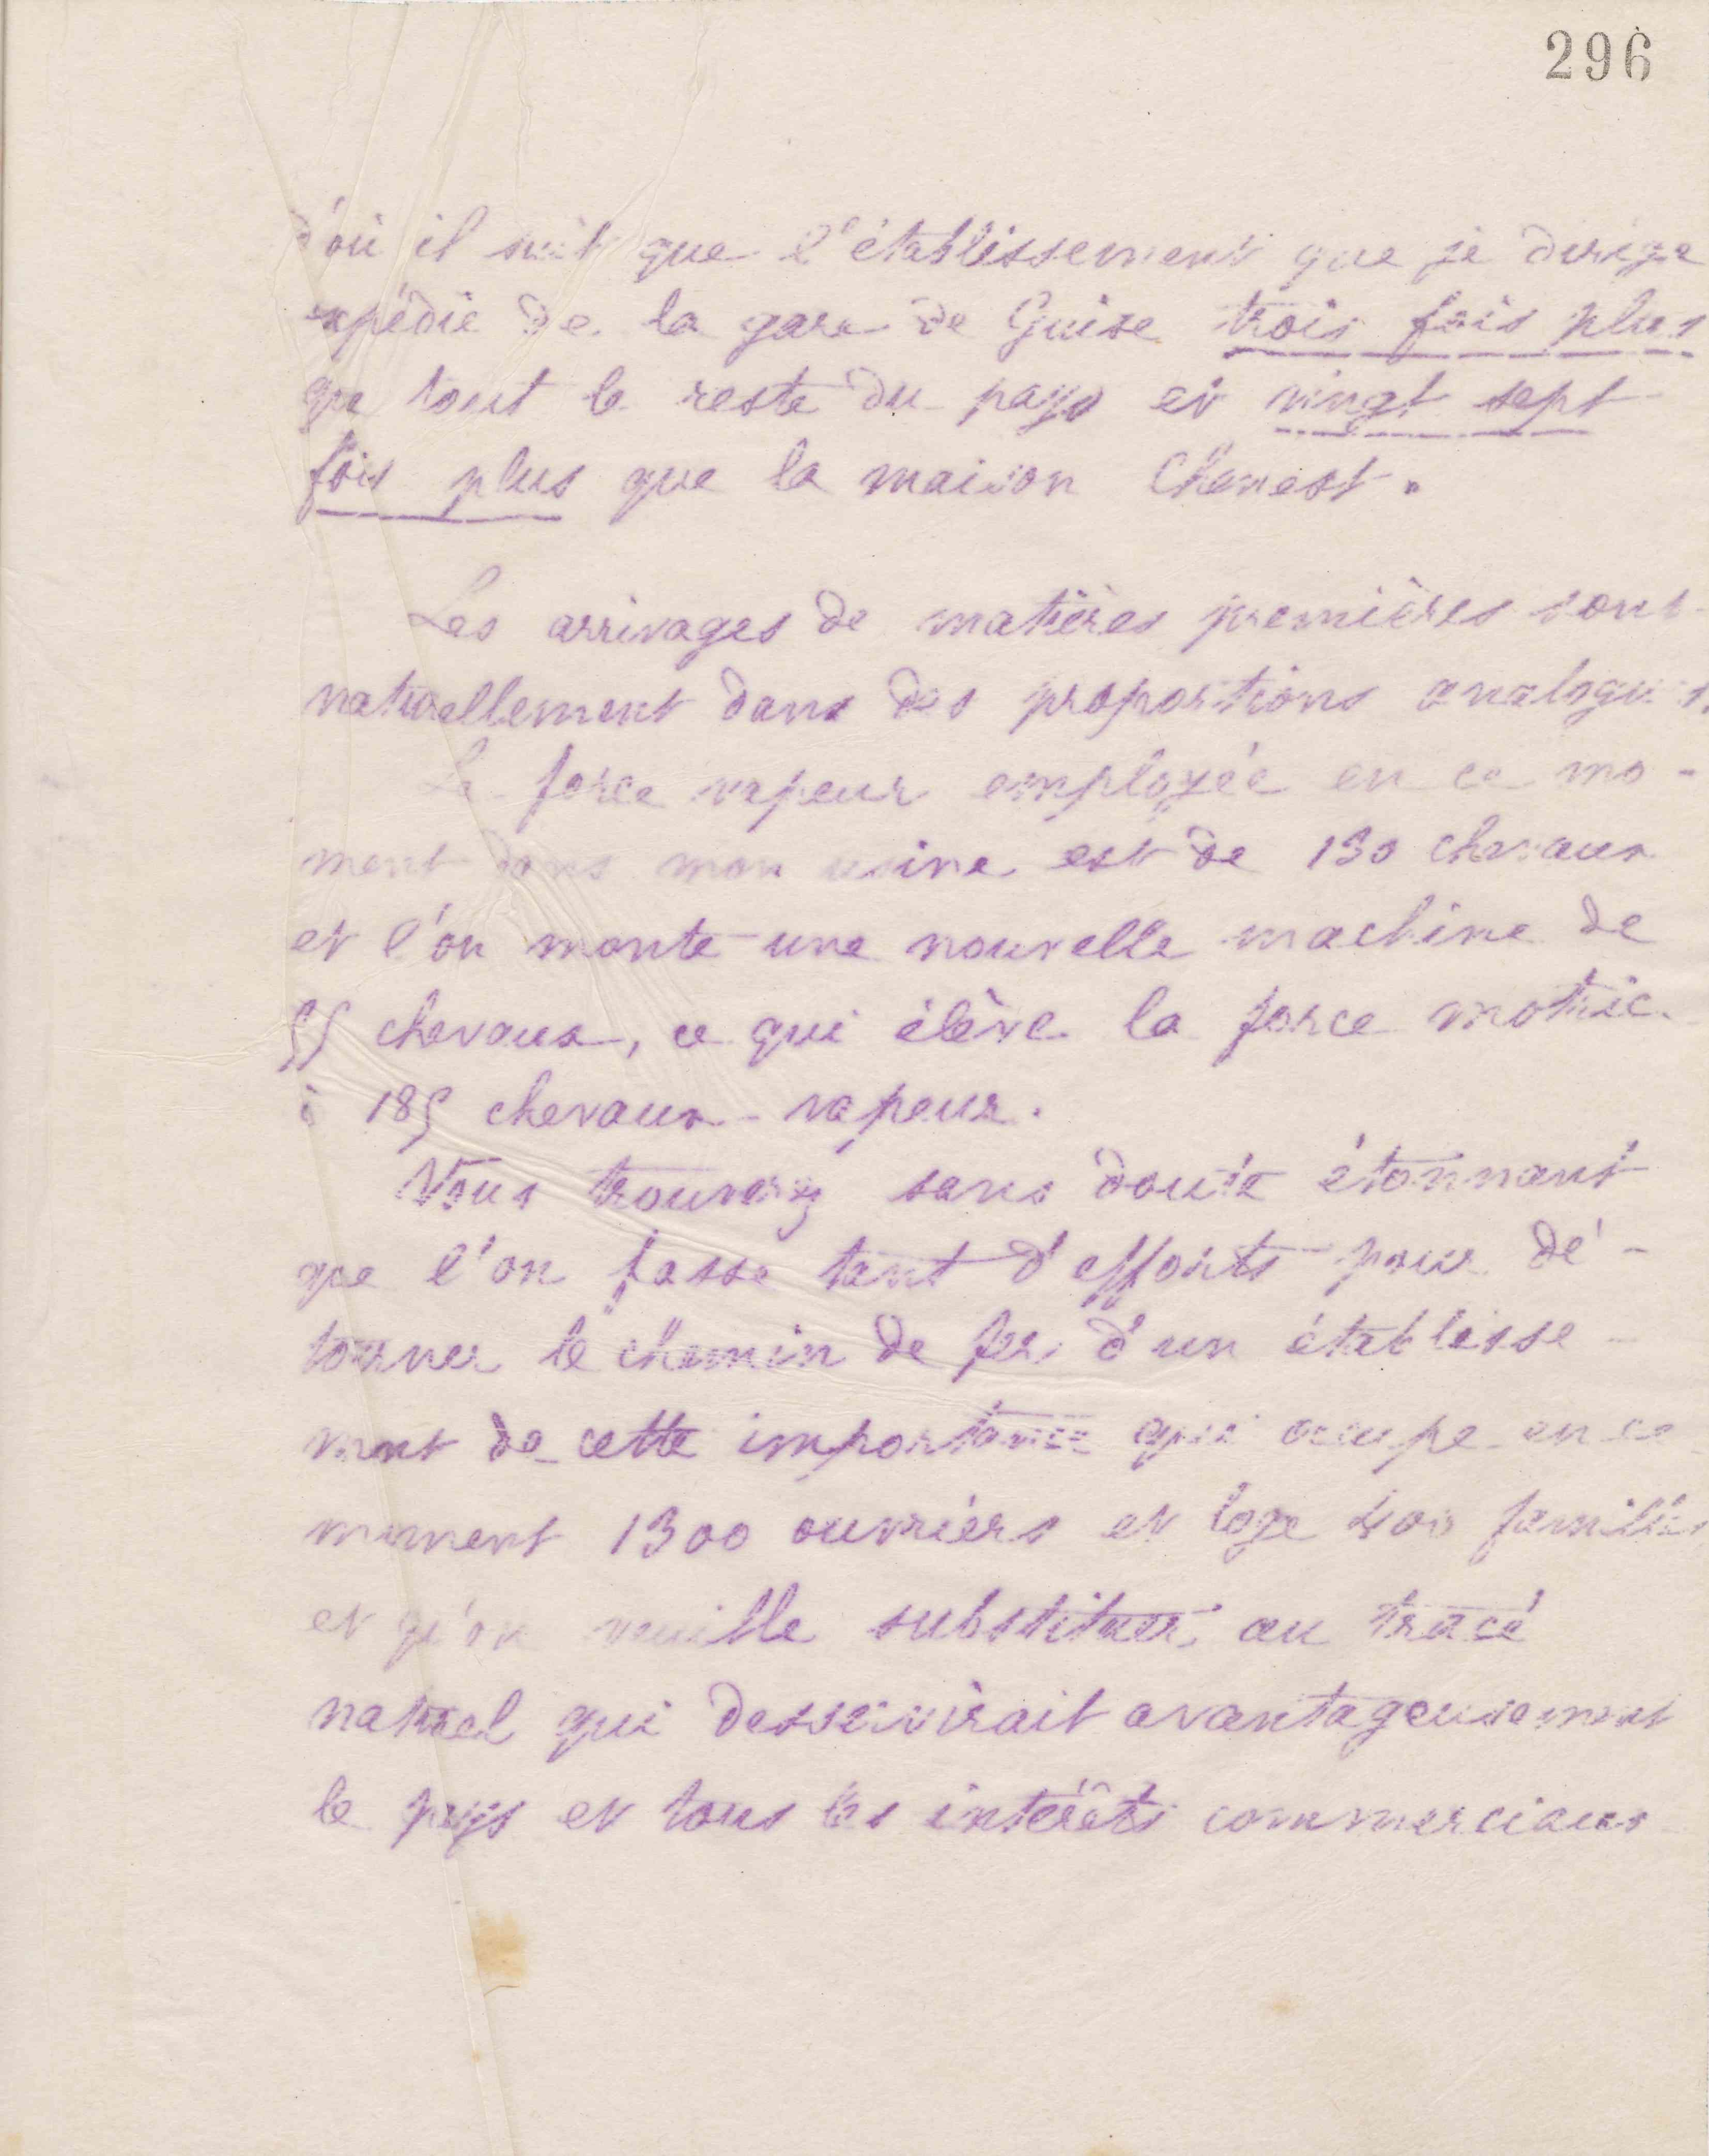 296
d'où il suit que l'établissement que je dirige
expédie de la gare de Guise trois fois plus
que tout le reste du pays et vingt sept
fois plus que la maison Chenest.
Les arrivages de matières premières sont
naturellement dans des proportions analogues.
La force vapeur employée en ce mo-
ment dans mon usine est de 130 chevaux
et l'on monte une nouvelle machine de
55 chevaux, ce qui élève la force motrice
à 185 chevaux-vapeur.
Vous trouverez sans doute étonnant
que l'on fasse tant d'efforts pour dé-
tourner le chemin de fer d'un établisse-
ment de cette importance qui occupe en ce
moment 1300 ouvriers et loge 400 familles
et qu'on veuille substituer au tracé
naturel qui desservirait avantageusement
le pays et tous les intérêts commerciaux